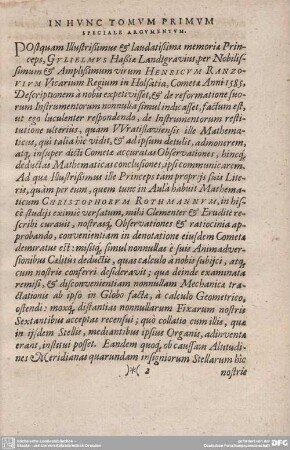 IN HVNC TOMVM PRIMVM
SPECIALE ARGVMENTVM.
POstquam Illustrissimus & laudatissima memoriæ Prin-
ceps, GVLIELMVS Hassiæ Landtgravius, per Nobilis-
simum & Amplissimum virum HENRICVM RANZO-
VIVM Vicarium Regium in Holsatia, Cometæ Anni 1585,
Descriptionem à nobis expetivisset, & de reformatione suo-
rum Instrumentorum nonnulla simul indicasset, factum est,
ut ego luculenter respondendo, de Instrumentorum resti-
tutione ulterius, quam VVratislaviensis ille Mathema-
ticus, qui talia hic vidit, & ad ipsum detulit, admonerem,
atq, insuper dicti Cometæ accuratas Observationes, hincq,
deductas Mathematicas conclusiones, ipsi communicarem.
Ad quæ Illustrissimus ille Princeps tam proprijs suis Lite-
ris, quàm per eum, quem tunc in Aula habuit Mathema-
ticum CHRISTOPHORVM ROTHMANNVM, in his-
cè studijs eximiè versatum, mihi Clementer & Eruditè re-
scribi curavit, nostrasq, Observationes & ratiocinia ap-
probando, convenientiam in denotatione eiusdem Cometæ
demiratus est: misitq, simul nonnullas è suis Animadver-
sionibus Cælitus deductis, quas calculo à nobis subijci, atq,
cum nostris conferri desideravit; quæ deinde examinata
remisi, & disconvenientiam nonnullam Mechanica tra-
ctationis ab ipso in Globo facta, à calculo Geometrico,
ostendi: moxq, distantias nonnullarum Fixarum nostris
Sextantibus acceptas recensui; quò collatio cum illis, quæ
in ijsdem Stellis, mediantibus ipsius Organis, adinventa
erant, institui posset. Eandem quoq, ob caussam Altitudi-
nes Meridianas quarundam insigniorum Stellarum hîc
)*( 2 nostris